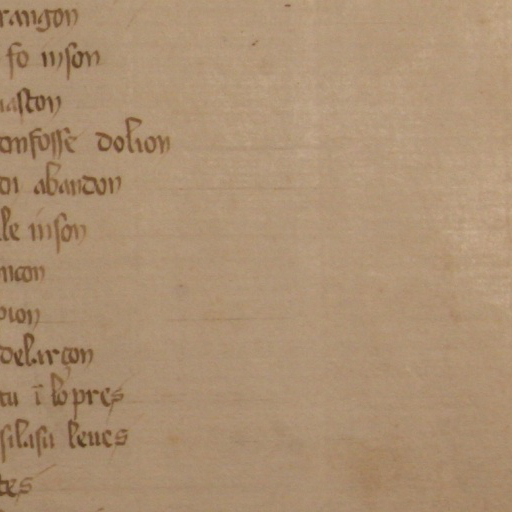 rangon
fo inson
naston
omfosse dolion
di abandon
lle inson
ncon
pion
delarçon
tu ī lo pres
silasu leues
tes